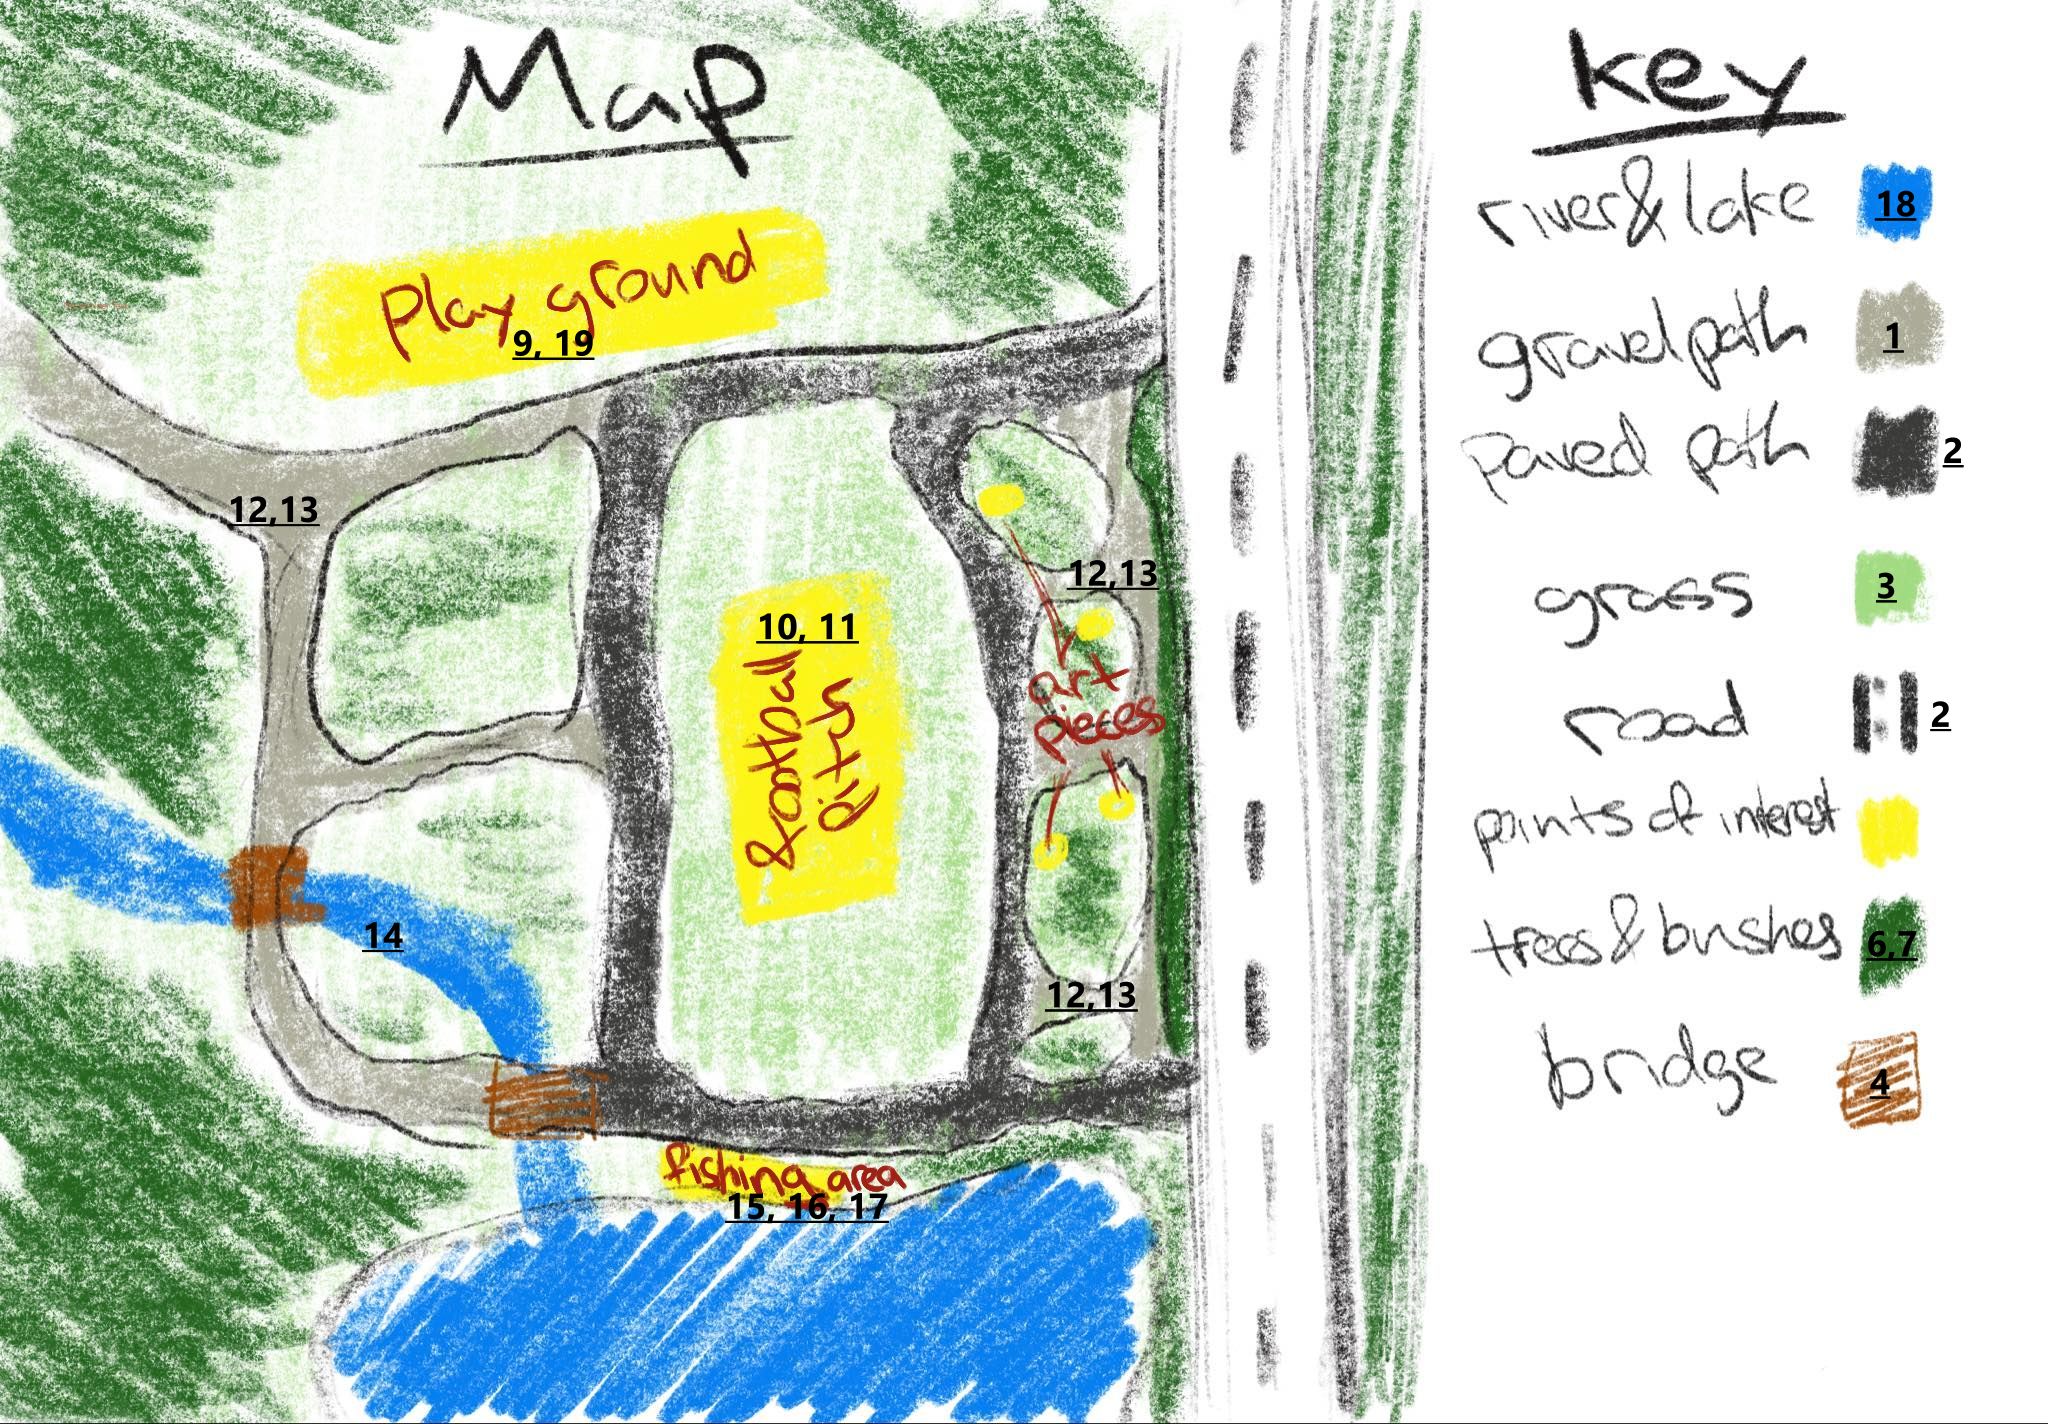 Map
Play ground
9, 19
12,13
10, 11
football
pitch
12,13
art
pieces
14
12,13
fishing area
15, 16, 17
key
river & lake 18
gravel path 1
Paved path 2
grass 3
road 2
points of interest
trees & bushes 6,7
bridge 4